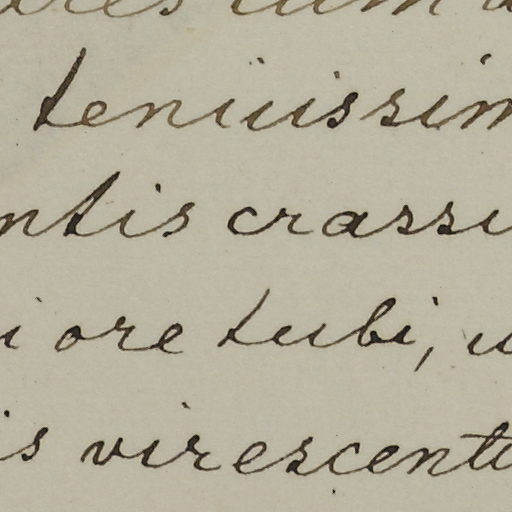 tenuissim
ntis crassi
i ore tubi, u
is virescenti